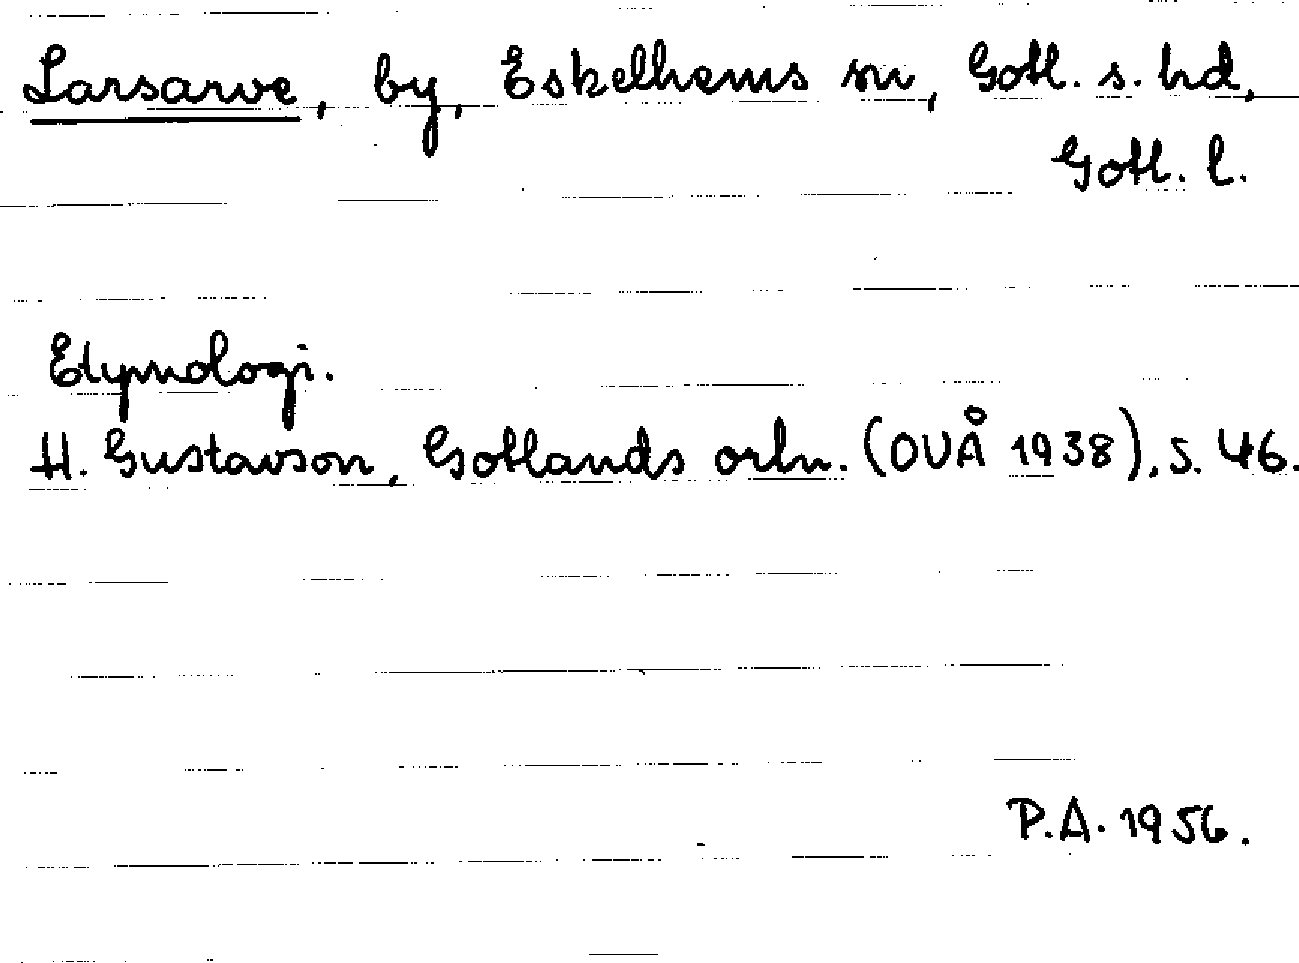 Larsarve, by, Eskelhems sn, Gotl. s. hd,
Gotl. l.
Etymologi.
H. Gustavson, Gotlands ortn. (OUÅ 1938), s. 46.
P.A. 1956.